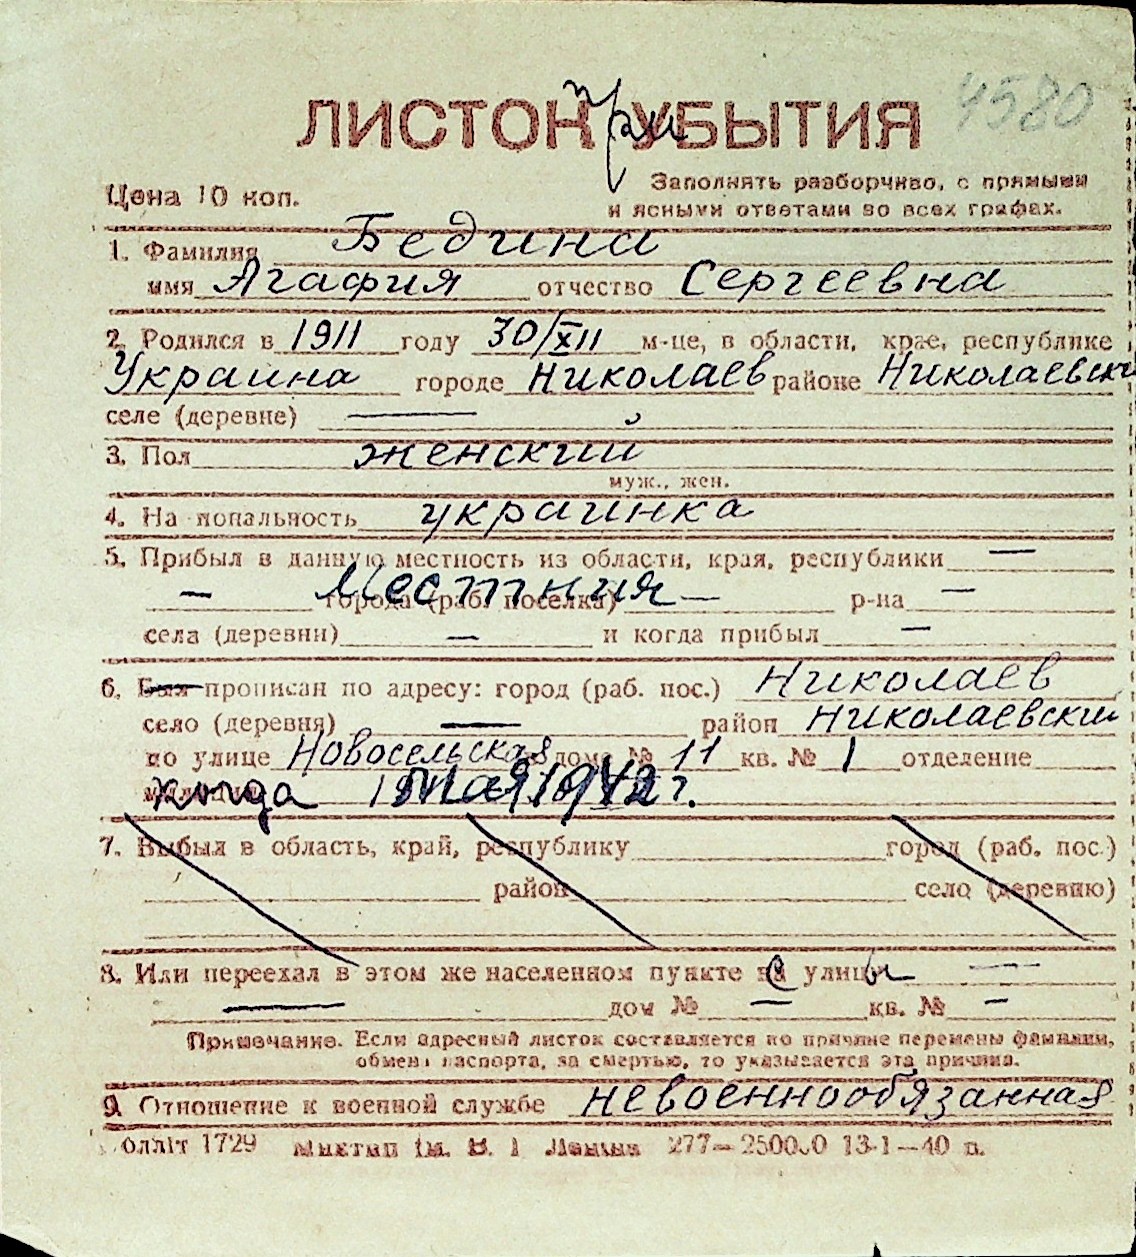 4580
ЛИСТОК прибЫТИЯ
Цена 10 коп.
Заполнять разборчиво, с прямыми
и ясными ответами во всех графах.
1. Фамилия Бедина
имя Агафия отчество Сергеевна
2. Родился в 1911 году 30/XII м-це, в области, крае, республике
Украина городе Николаев районе Николаевский
селе (деревне) —
3. Пол женский
муж., жен.
4. Национальность украинка
5. Прибыл в данную местность из области, края, республики —
— города (раб. поселка) Местная — р-на —
села (деревни) — и когда прибыл —
6. Был прописан по адресу: город (раб. пос.) Николаев
село (деревня) — район Николаевский
по улице Новосельская дома № 11 кв. № 1 отделение
когда мая 1942 г.
7. Выбыл в область, край, республику город (раб. пос.)
район село (деревню)
8. Или переехал в этом же населенном пункте с улицы —
— дом № — кв. № —
Примечание. Если адресный листок составляется по причине перемены фамилии,
обмена паспорта, за смертью, то указывается эта причина.
9. Отношение к военной службе невоеннообязанная
1729 277—25000 13-1—40 п.